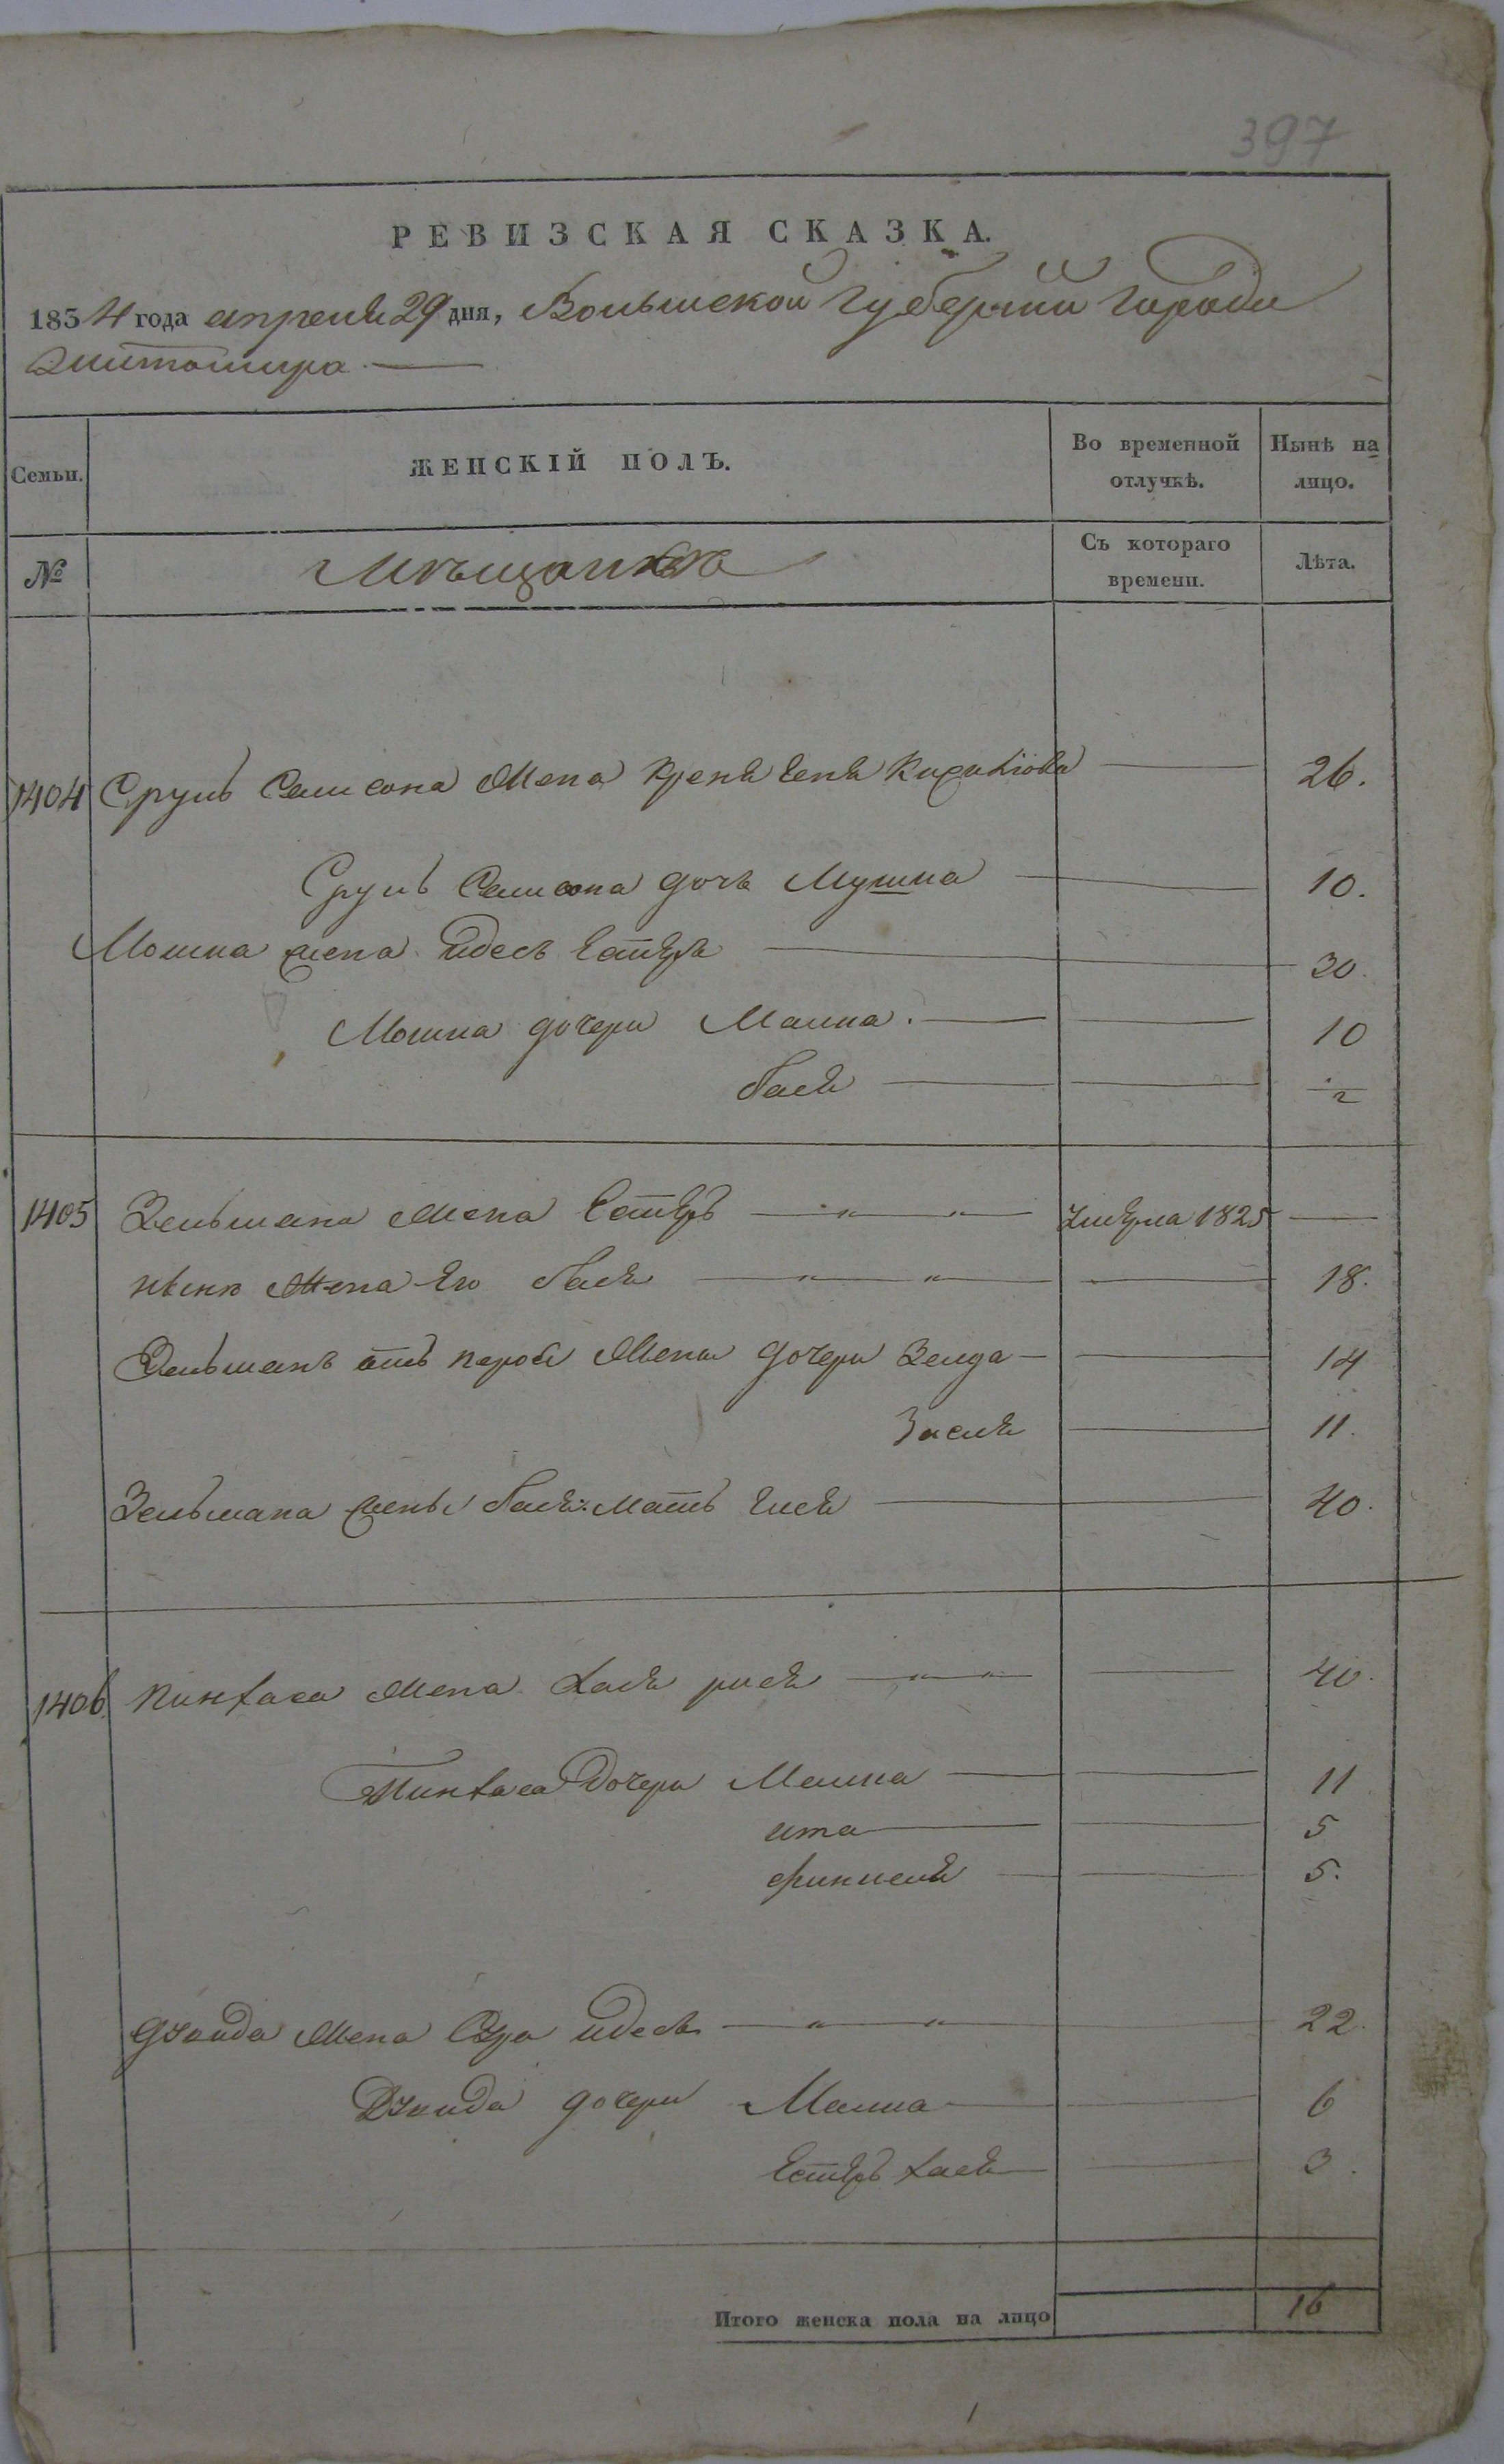 397
РЕВИЗСКАЯ СКАЗКА.
1834 года апреля 29 дня, Волынской Губернїи Города
Житомира
Семьи. ЖЕНСКІЙ ПОЛЪ. Во временной отлучкѣ. Нынѣ на лицо.
№ Мѣщанъ Съ котораго времени. Лѣта.
1404 Сруль Самсона жена Креня 26.
Сруль Самсона дочь Мушка 10.
Мошка жена Идесъ Естеръ 30.
Мошка дочери Малка 10
бася
1405 Зельмана жена Естеръ умерла 1825
нынѣ жена его бася 18.
Зельмана отъ первой жены дочери Зелда 14
11.
Зельмана жены баси: мать 40.
1406 Пинхаса жена Хася рися 40.
Пинхаса дочери Малка 11
ита 5
5.
Дувида жена Сура идесъ 22.
Дувида дочери Малка 6
Естеръ хася 3.
Итого женска пола на лицо 16